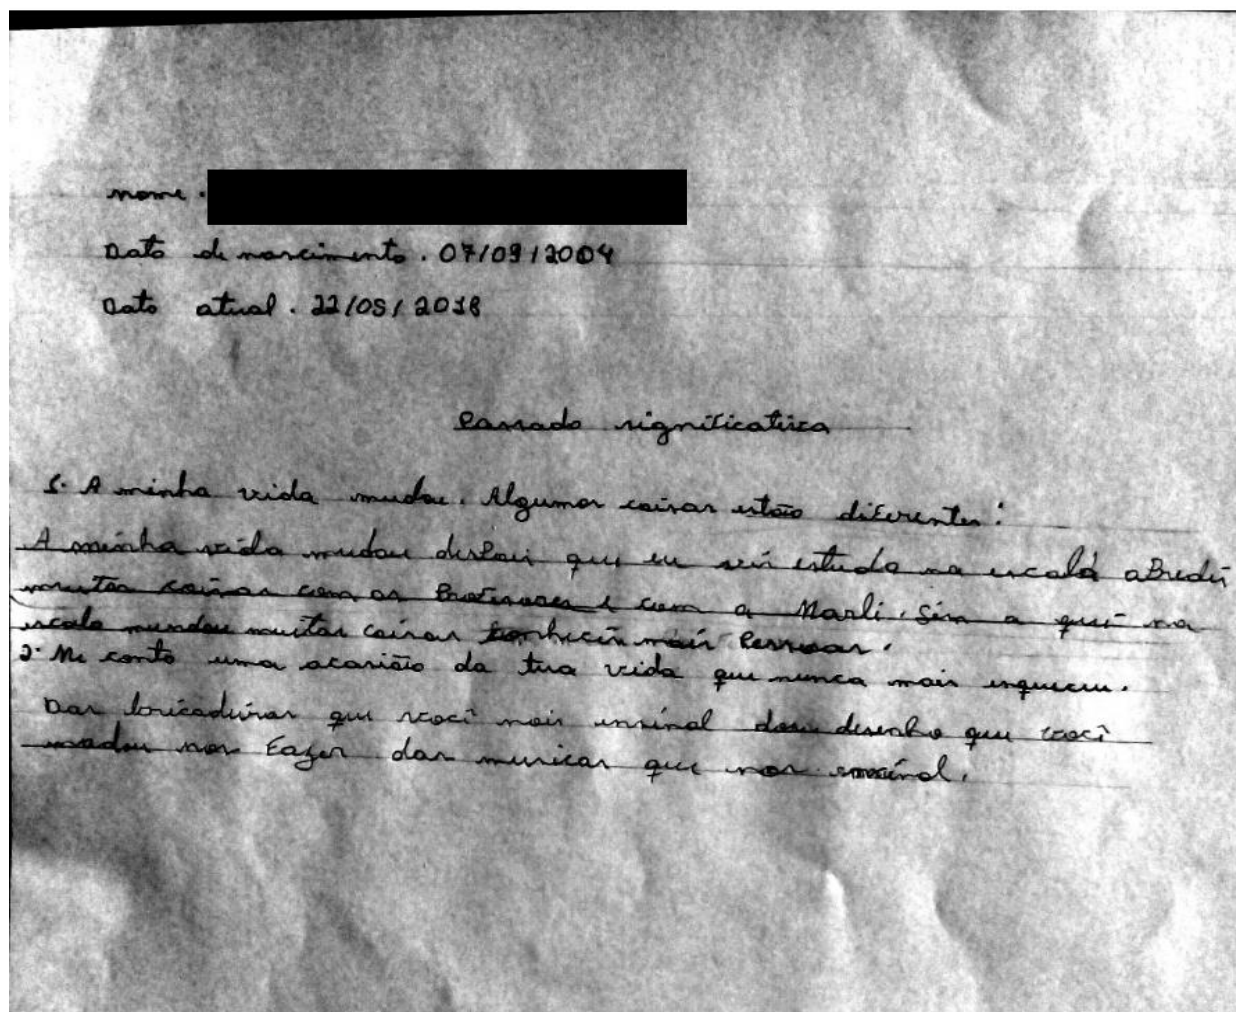 nome.
Data de nascimento. 07/09/2004
Data atual. 22/05/2018
Passado significativa
1. A minha vida mudou. Algumas coisas estão diferentes:
A minha vida mudou despoi que eu vin estuda na escola aPredi
muitas coisas com os Professores e com a Marli. Sim a qui na
escola mundou muitas coisas conhecin mais Pessoas.
2. Me conta uma acasião da tua vida que nunca mais esqueceu.
Das bricadeiras que você nois ensinol dou desenho que você
madou nos fazer das musicas que nos ensinol.